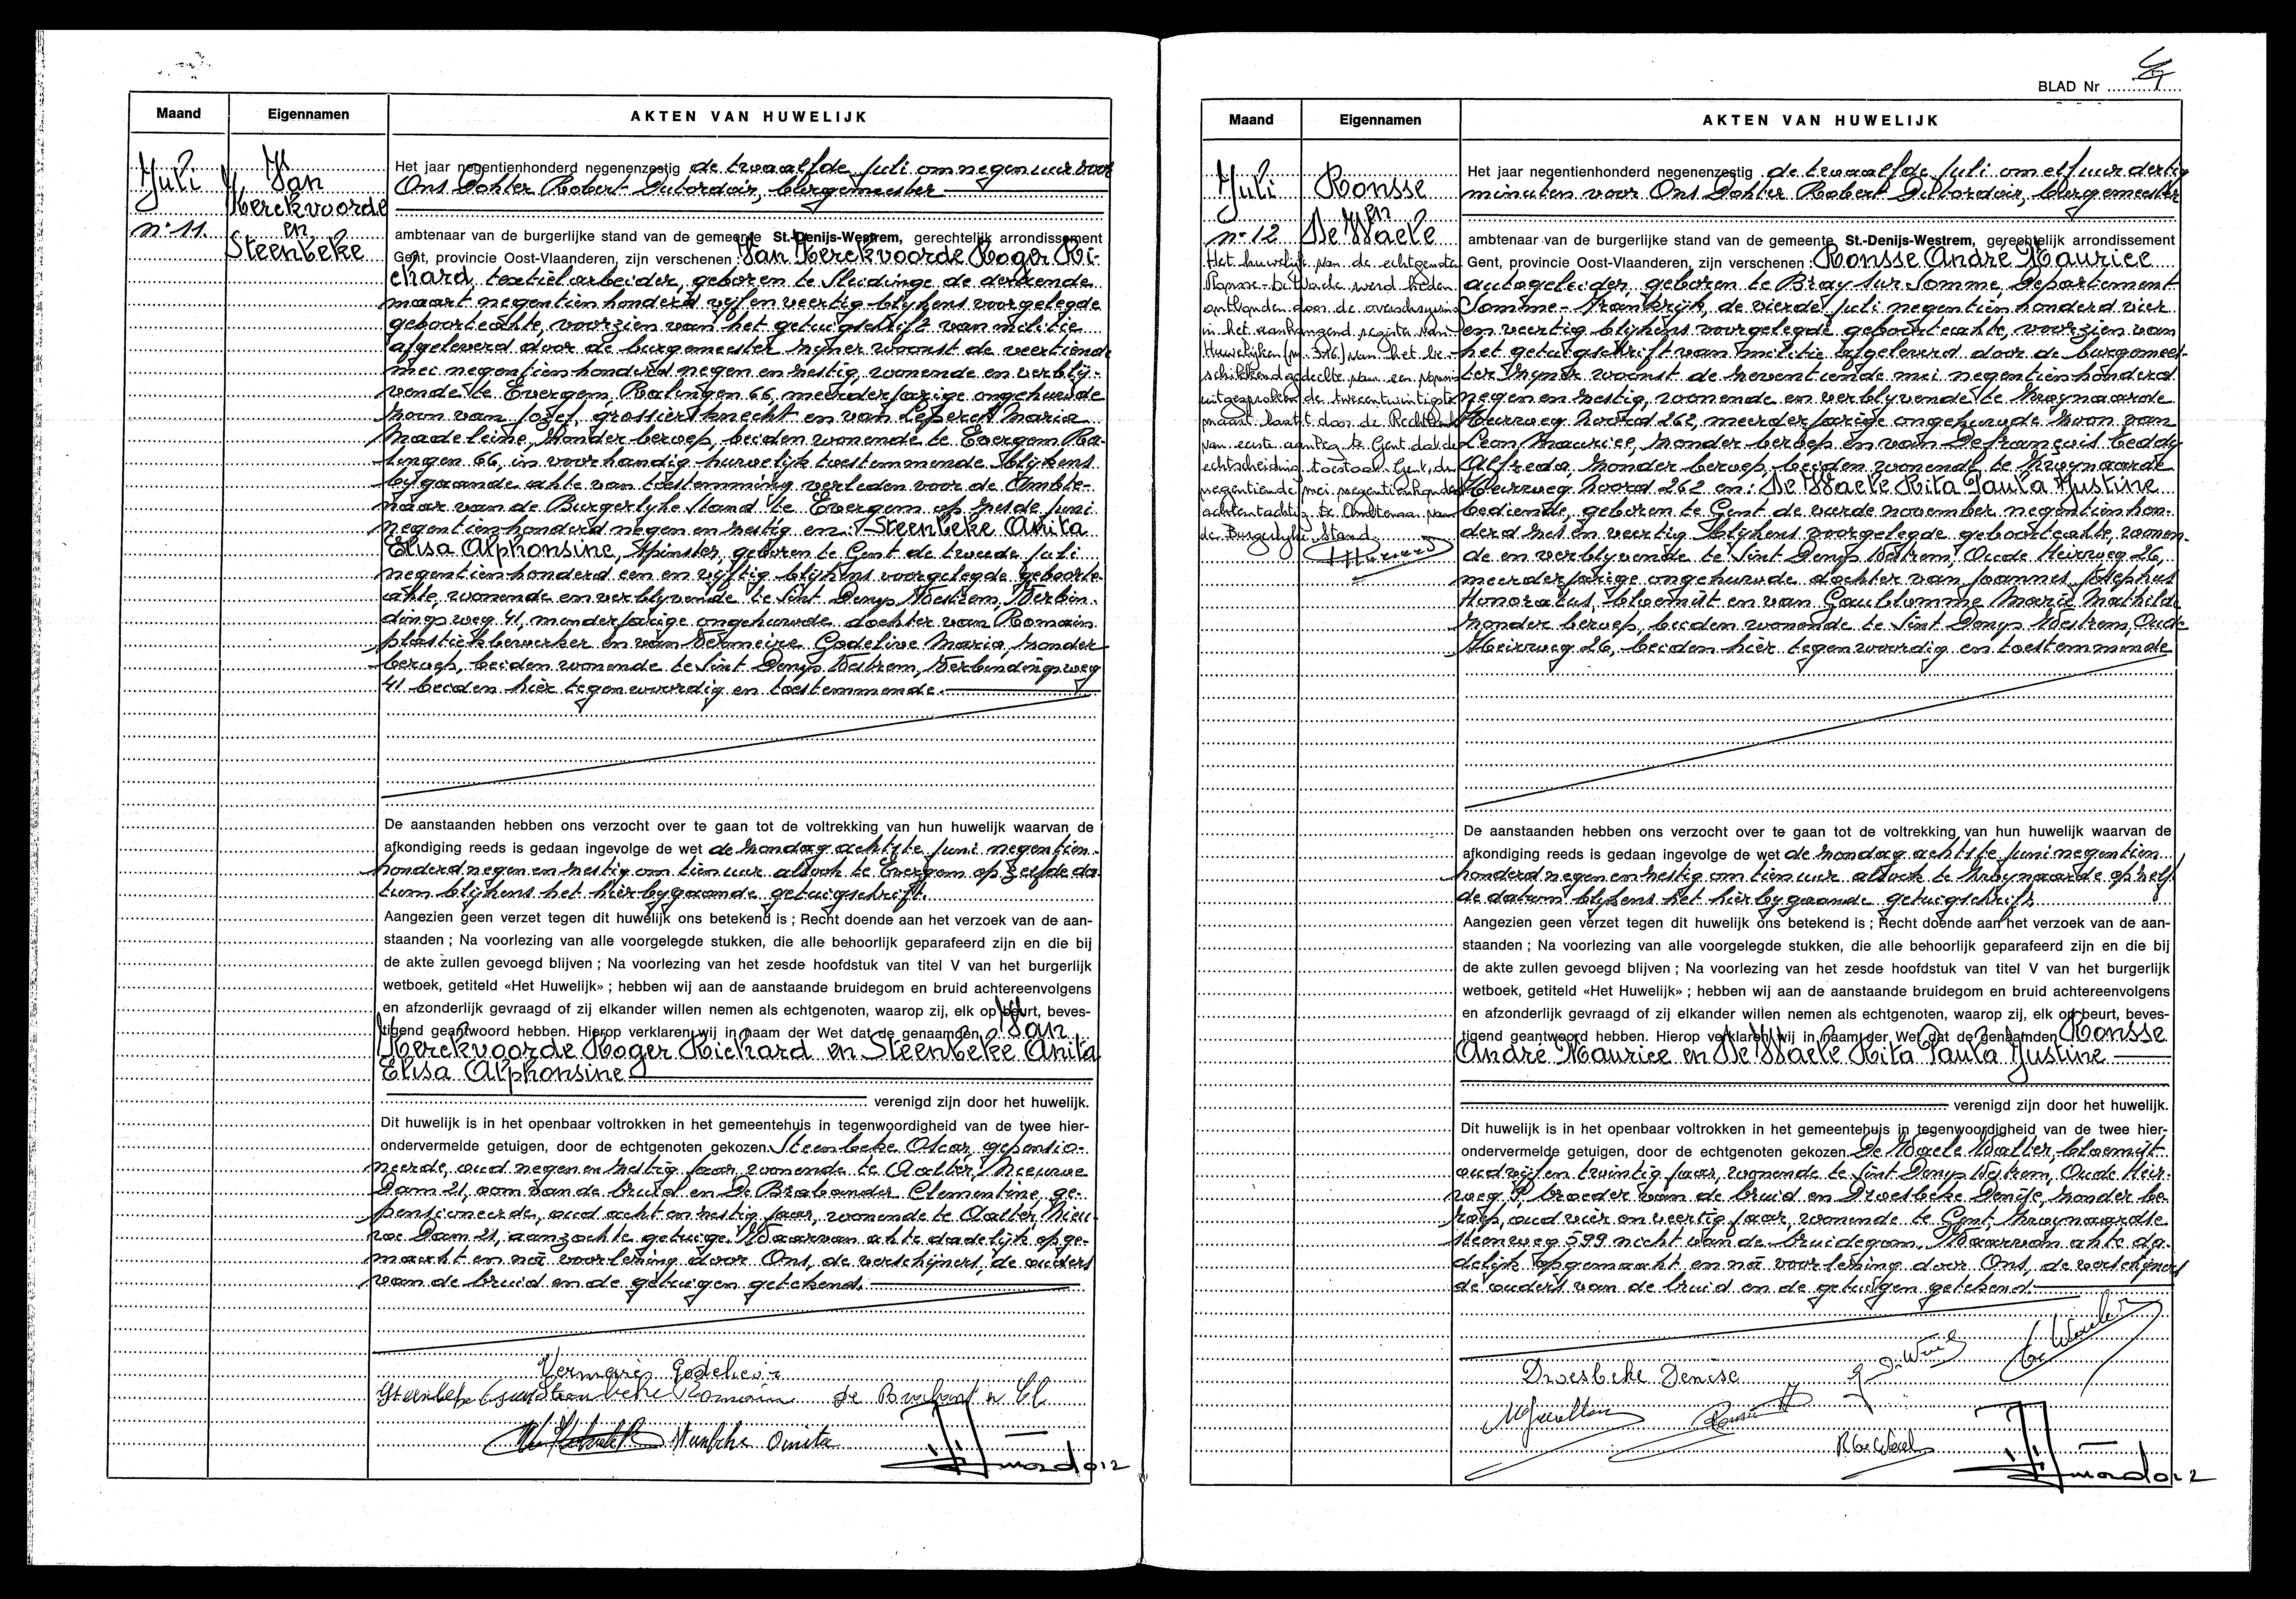 Maand
Eigennamen
AKTEN VAN HUWELIJK
Juli
n° 11.
Van
Kerckvoorde
en
Steenbeke
Het jaar negentienhonderd negenenzestig de twaalfde Juli om negen uur voor
Ons Dokter Robert burgemeester
ambtenaar van de burgerlijke stand van de gemeente St.-Denijs-Westrem, gerechtelijk arrondissement
Gent, provincie Oost-Vlaanderen, zijn verschenen : Van Kerckvoorde Roger Ri-
chard, textielarbeider, geboren te Sleidinge de dertiende
maart negentienhonderd vijf en veertig blijkens voorgelegde
geboorteakte, voorzien van het getuigschrift van militie
afgeleverd door de burgemeester zijner woonst de veertiende
mei negentienhonderd negen en zestig, wonende en verblij-
vende te Evergem, Ralingen 66, meerderjarige ongehuwde
zoon van Jozef, grossiersknecht en van Maria
Madeleine, zonder beroep, beiden wonende te Evergem Ra-
lingen 66, in voorhandig huwelijk toestemmende blijkens
bijgaande akte van toestemming verleden voor de Ambte-
naar van de Burgerlijke Stand te Evergem op zesde juni
negentienhonderd negen en zestig en: Steenbeke Anita
Elisa Alphonsine, spinster, geboren te Gent de tweede Juli
negentienhonderd een en vijftig blijkens voorgelegde geboorte-
akte, wonende en verblyvende te Sint Denys Westrem, Verbin-
dingsweg 41, minderjarige ongehuwde dochter van Romain
plastiekbewerker en van Vermeire Godelive Maria, zonder
beroep, beiden wonende te Sint Denys Westrem, Verbindingsweg
41 beiden hier tegenwoordig en toestemmende.
De aanstaanden hebben ons verzocht over te gaan tot de voltrekking van hun huwelijk waarvan de
afkondiging reeds is gedaan ingevolge de wet de zondag achtste juni negentien-
honderd negen en zestig om tien uur alsook te Evergem op zelfde da-
tum blijkens het hierbygaande getuigschrift.
Aangezien geen verzet tegen dit huwelijk ons betekend is ; Recht doende aan het verzoek van de aan-
staanden ; Na voorlezing van alle voorgelegde stukken, die alle behoorlijk geparafeerd zijn en die bij
de akte zullen gevoegd blijven ; Na voorlezing van het zesde hoofdstuk van titel V van het burgerlijk
wetboek, getiteld «Het Huwelijk» ; hebben wij aan de aanstaande bruidegom en bruid achtereenvolgens
en afzonderlijk gevraagd of zij elkander willen nemen als echtgenoten, waarop zij, elk op beurt, beves-
tigend geantwoord hebben. Hierop verklaren wij in naam der Wet dat de genaamden Van
Kerckvoorde Roger Richard en Steenbeke Anita
Elisa Alphonsine
verenigd zijn door het huwelijk.
Dit huwelijk is in het openbaar voltrokken in het gemeentehuis in tegenwoordigheid van de twee hier-
ondervermelde getuigen, door de echtgenoten gekozen Steenbeke Oscar, gepensio-
neerde, oud negen en zestig jaar, wonende te Aalter, Nieuwe
Dam 21, oom van de bruid en De Brabander Clementine, ge-
pensioneerde, oud acht en zestig jaar, wonende te Aalter, Nieu-
we Dam 21, aanzochte getuige. Waarvan akte dadelijk opge-
maakt en na voorlezing door Ons, de verschijners, de ouders
van de bruid en de getuigen getekend.
Steenbeke Romain
Steenbeke Anita
BLAD Nr
Maand
Eigennamen
AKTEN VAN HUWELIJK
Juli
n° 12
Ronsse
en
De Waele
Het huwelijk van de echtgenoten
Ronsse-De Waele werd heden
ontbonden door de overschrijving
in het aanhangend register van
Huwelijken (nr 346) van het be-
schikkend gedeelte van een vonnis
uitgesproken de tweeentwintigste
maart laatst door de Rechtbank
van eerste aanleg te Gent dat de
echtscheiding toestaat. Gent, de
negentiende mei negentienhonderd
achtentachtig. De Ambtenaar van
de Burgerlijke Stand
Het jaar negentienhonderd negenenzestig de twaalfde Juli om elf uur dertig
minuten voor Ons Dokter Robert burgemeester
ambtenaar van de burgerlijke stand van de gemeente St.-Denijs-Westrem, gerechtelijk arrondissement
Gent, provincie Oost-Vlaanderen, zijn verschenen : Ronsse André Maurice
autogeleider, geboren te Bray sur Somme, Departement
Somme-Frankrijk, de vierde juli negentienhonderd vier
en veertig blijkens voorgelegde geboorteakte, voorzien van
het getuigschrift van militie afgeleverd door de burgemees-
ter zijner woonst de zeventiende mei negentienhonderd
negen en zestig, wonende en verblyvende te Zwijnaarde
Heerweg Noord 262, meerderjarige ongehuwde zoon van
Leon Maurice, zonder beroep en van Defrançois Eeddy
Alfreda zonder beroep, beiden wonende te Zwijnaarde
Heerweg Noord 262 en: De Waele Rita Paula Justine
bediende, geboren te Gent de vierde november negentienhon-
derd zes en veertig blijkens voorgelegde geboorteakte, wonen-
de en verblyvende te Sint Denys Westrem, Oude Heirweg 26,
meerderjarige ongehuwde dochter van Joannes Josephus
Honoratus, bloemist en van Gaublomme Marie Mathilde
zonder beroep, beiden wonende te Sint Denys Westrem, Oude
Heirweg 26, beiden hier tegenwoordig en toestemmende
De aanstaanden hebben ons verzocht over te gaan tot de voltrekking van hun huwelijk waarvan de
afkondiging reeds is gedaan ingevolge de wet de zondag achtste juni negentien
honderd negen en zestig om tien uur alsook te Zwijnaarde op zelf-
de datum blijkens het hierbygaande getuigschrift.
Aangezien geen verzet tegen dit huwelijk ons betekend is ; Recht doende aan het verzoek van de aan-
staanden ; Na voorlezing van alle voorgelegde stukken, die alle behoorlijk geparafeerd zijn en die bij
de akte zullen gevoegd blijven ; Na voorlezing van het zesde hoofdstuk van titel V van het burgerlijk
wetboek, getiteld «Het Huwelijk» ; hebben wij aan de aanstaande bruidegom en bruid achtereenvolgens
en afzonderlijk gevraagd of zij elkander willen nemen als echtgenoten, waarop zij, elk op beurt, beves-
tigend geantwoord hebben. Hierop verklaren wij in naam der Wet dat de genaamden Ronsse
André Maurice en De Waele Rita Paula Justine
verenigd zijn door het huwelijk.
Dit huwelijk is in het openbaar voltrokken in het gemeentehuis in tegenwoordigheid van de twee hier-
ondervermelde getuigen, door de echtgenoten gekozen De Waele Walter, bloemist
oud vijf en twintig jaar, wonende te Sint Denys Westrem, Oude Heir-
weg 9, broeder van de bruid en Droesbeke Denise, zonder be-
roep, oud vier en veertig jaar, wonende te Gent, Zwijnaardse
steenweg 599 nicht van de bruidegom. Waarvan akte da-
delijk opgemaakt en na voorlezing door Ons, de verschijners
de ouders van de bruid en de getuigen getekend.
Droesbeke Denise